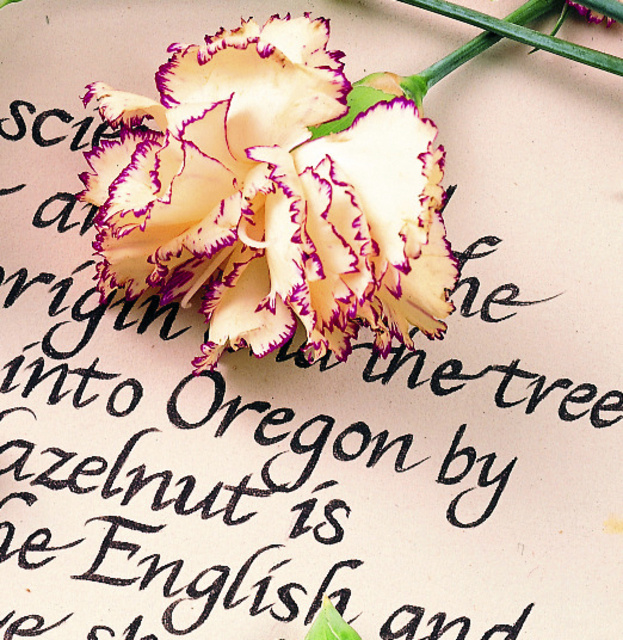 scie
a he
rigin the tree
into Oregon by
azelnut is
he English and
ve sh